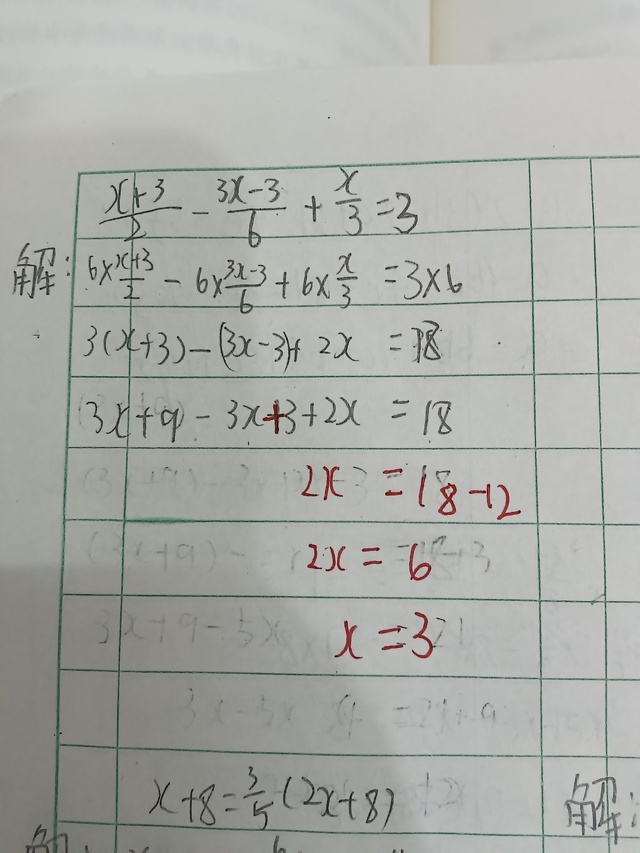 (x+3)/2 - (3x-3)/6 + x/3 = 3
解: 6×(x+3)/2 - 6×(3x-3)/6 + 6×x/3 = 3×6
3(x+3)-(3x-3)+2x = 18
3x+9-3x+3+2x = 18
2x = 18-12
2x = 6
x = 3
x+8=3/5(2x+8)
解: